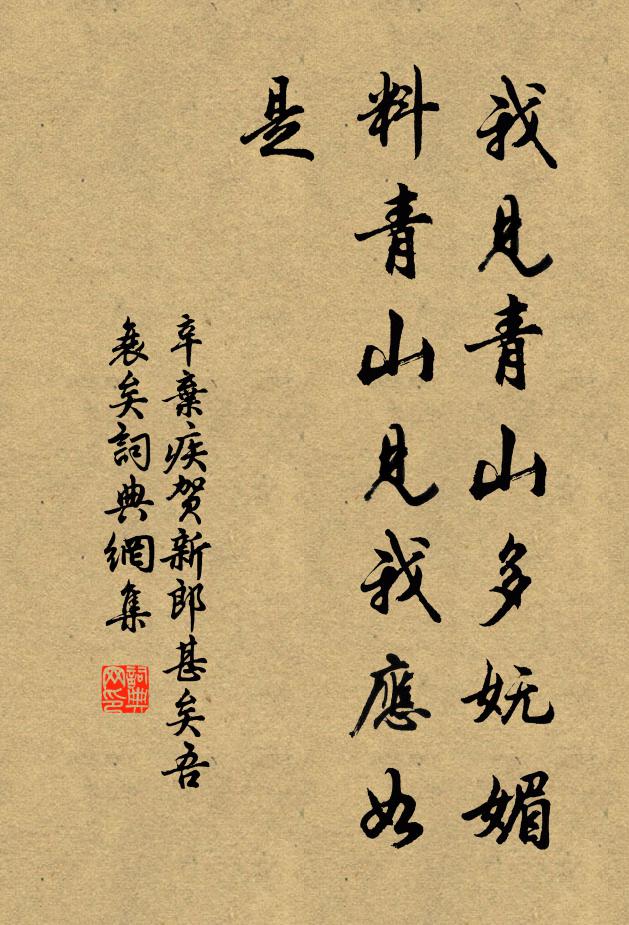 我見青山多妩媚
料青山見我應如
是
辛棄疾贺新郎甚矣吾
衰矣詞典網集
詞典网印